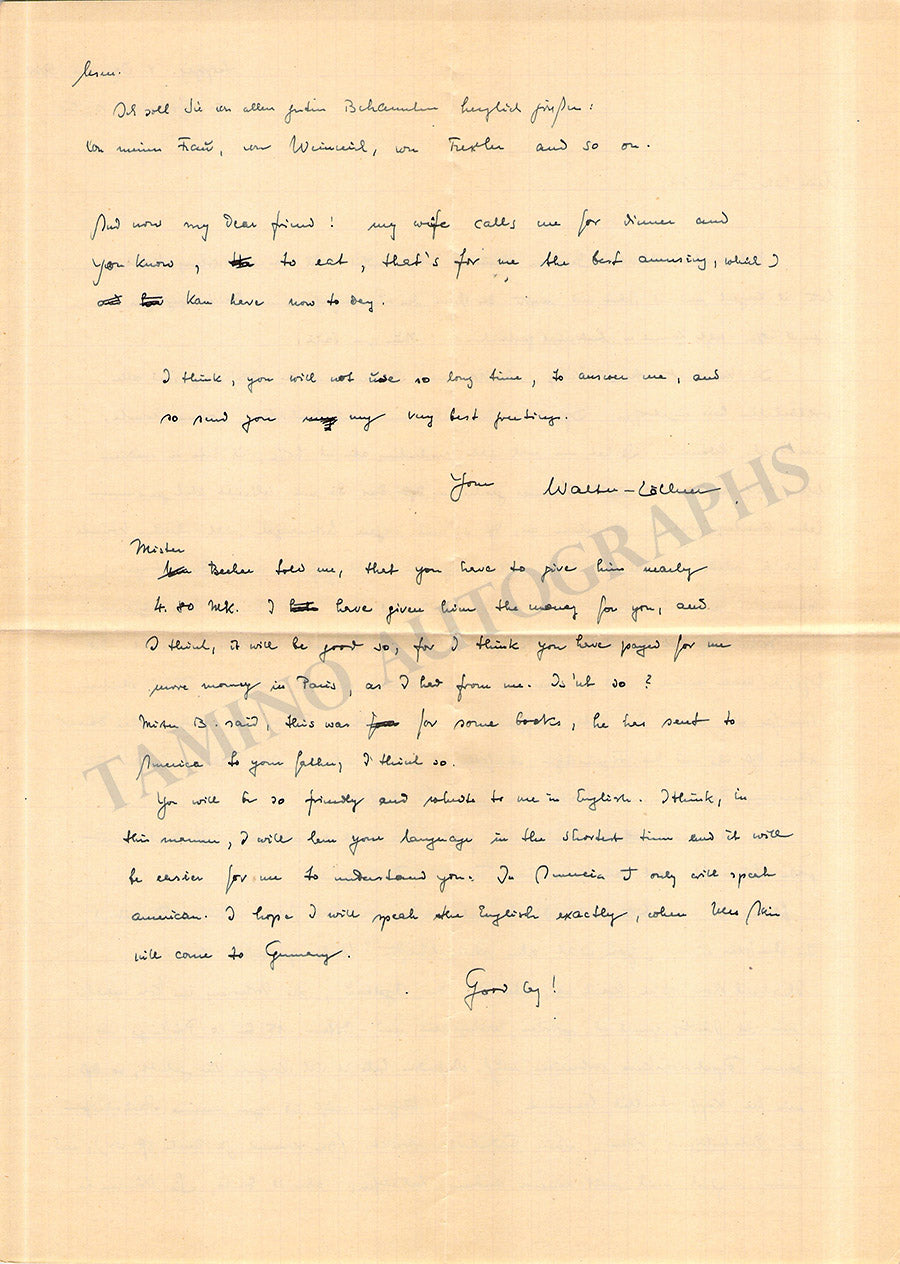 lesen.
Ich soll Sie von allen guten Bekannten herzlich grüßen:
Von meiner Frau, von Weinreich, von Trexler and so on.
And now my dear friend! my wife calls me for dinner and
you know, to eat, that's for me the best amusing, which I
kan have now to day.
I think, you will not use so long time, to answer me, and
so send you my very best greetings.
Your Walter-Zöllner
Mister
Becker told me, that you have to give him nearly
4.80 MK. I have given him the money for you, and
I think, it will be good so, for I think you have payed for me
more money in Paris, as I had from me. Is'nt so?
Mister B. said, this was for some books, he has sent to
America to your father, I think so.
You will be so friendly and white to me in English. I think, in
this manner, I will lern your language in the shortest time and it will
be easier for me to understand you. In America I only will speak
american. I hope I will speak the English exactly, when
will come to Germany.
Good by!
TAMINO AUTOGRAPHS